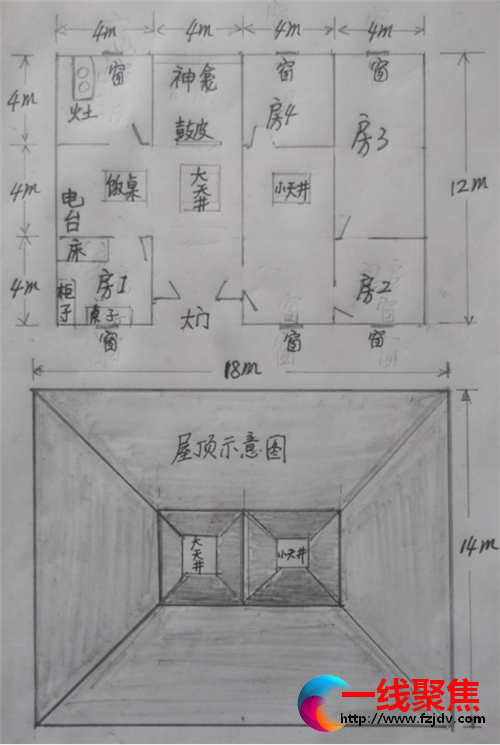 4m 4m 4m 4m
窗 窗 窗
神龛
4m
灶
房4
鼓皮
房3
4m
饭桌
大天井
小天井
12m
电台
床
4m
柜子
房1
桌子
房2
窗
大门
窗
窗
18m
屋顶示意图
大天井
小天井
14m
一线聚焦
http://www.fzjdv.com